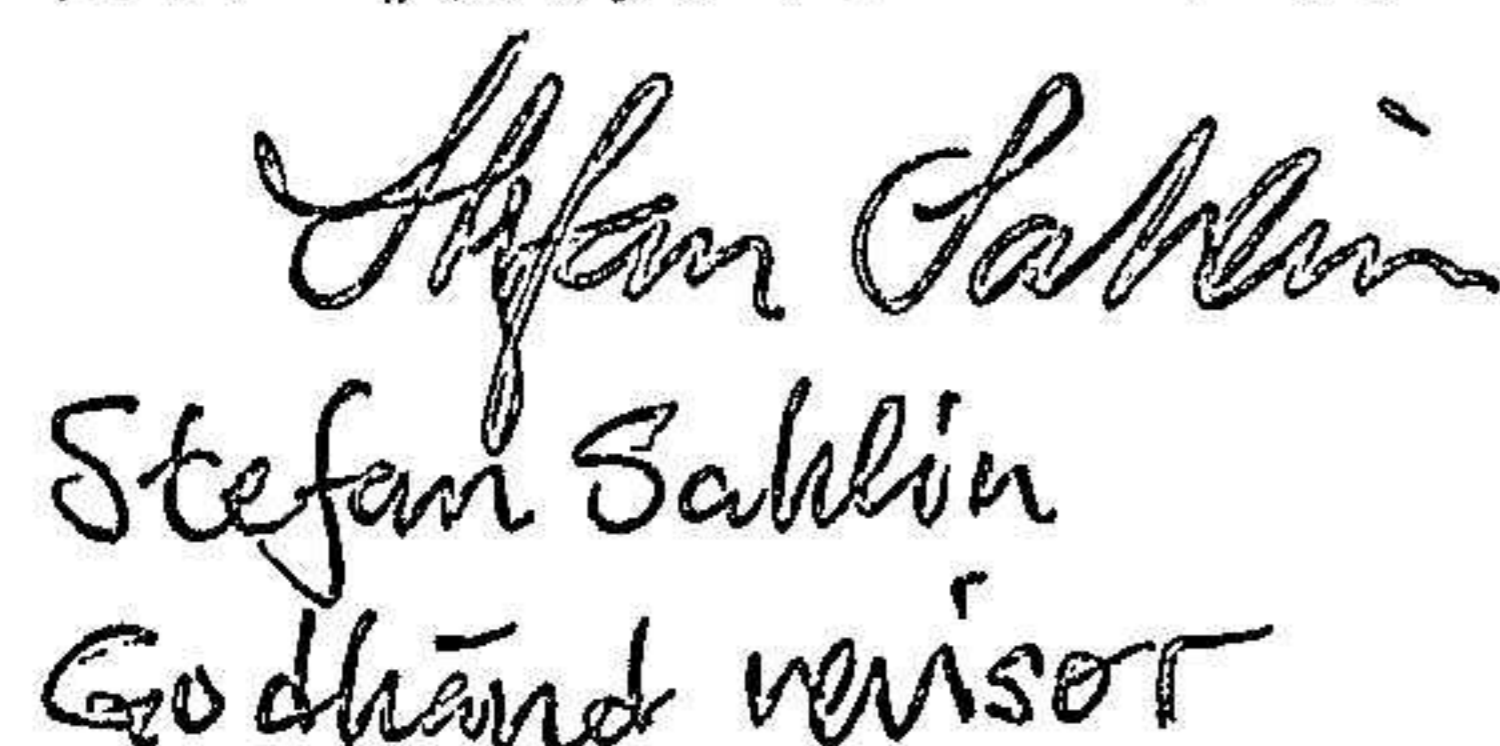 Stefan Sahlin
Stefan Sahlin
Godkänd revisor